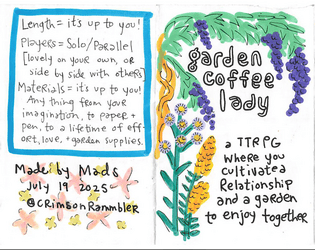 Length = it's up to you!
Players = Solo/Parallel
[lovely on your own, or
side by side with others]
Materials = it's up to you!
Any thing from your
imagination, to paper +
pen, to a lifetime of eff-
ort, love, + garden supplies.
Made by Mads
July 19 2025
@crimsonRammbler
garden
coffee
lady
a TTRPG
where you
cultivate a
Relationship
and a garden
to enjoy together